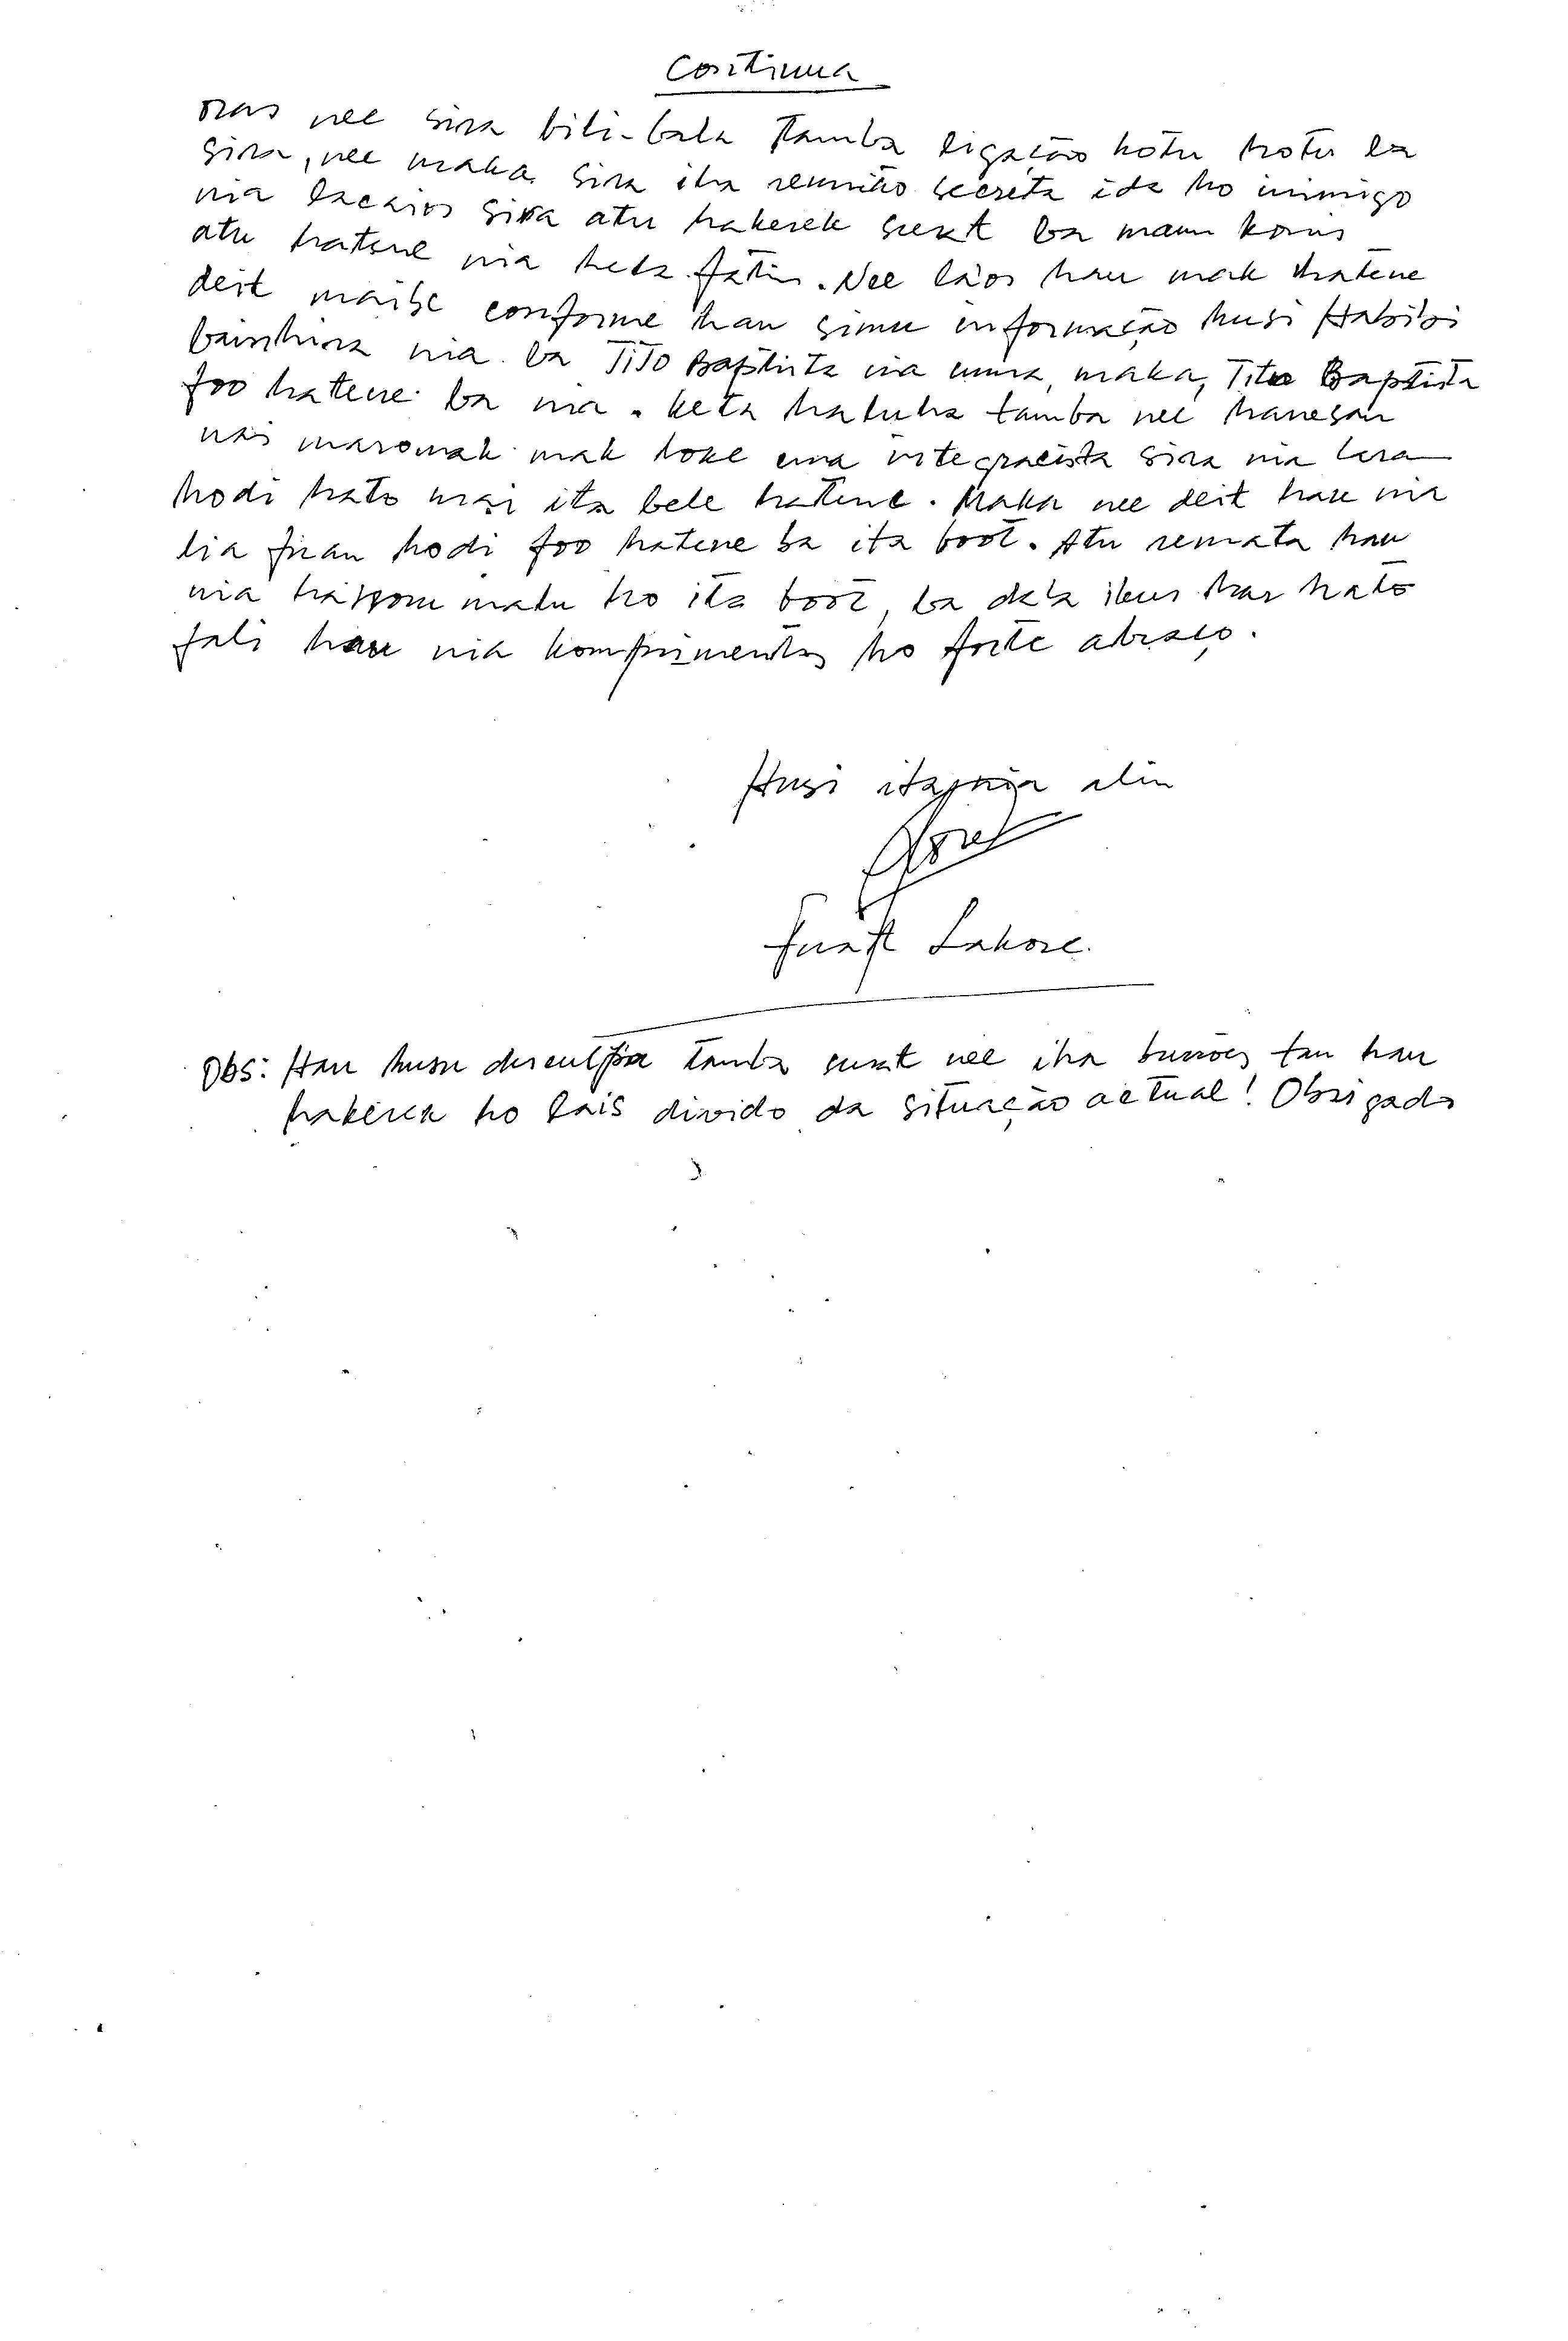 Continua
oras nee sira bili-bala tamba ligação hotu hotu la
sira, nee maka sira iha reunião secreta ida ho inimigo
nia lacaios sira atu hakerek surat ba maun Konis
atu hatene nia hela fatin. Nee la'os hau mak hatene
deit maibe conforme hau simu informação husi Habibi
bainhira nia ba TITO Baptista nia uma, maka, Tito Baptista
foo hatene ba nia. Keta haluha tamba nee hanesan
nai maromak mak loke ema integracista sira nia
hodi hato mai ita bele hatene. Maka nee deit hau nia
lia fuan hodi foo hatene ba ita boot. Atu remata hau
nia hasoru malu ho ita boot, ba dala ikus hau hato
fali hau nia komprimentos ho forte abraço.
Husi ita nia alin
Lakore.
Obs: Hau husu desculpa tamba surat nee iha burrões tan hau
hakerek ho lais divido da situação actual! Obrigado